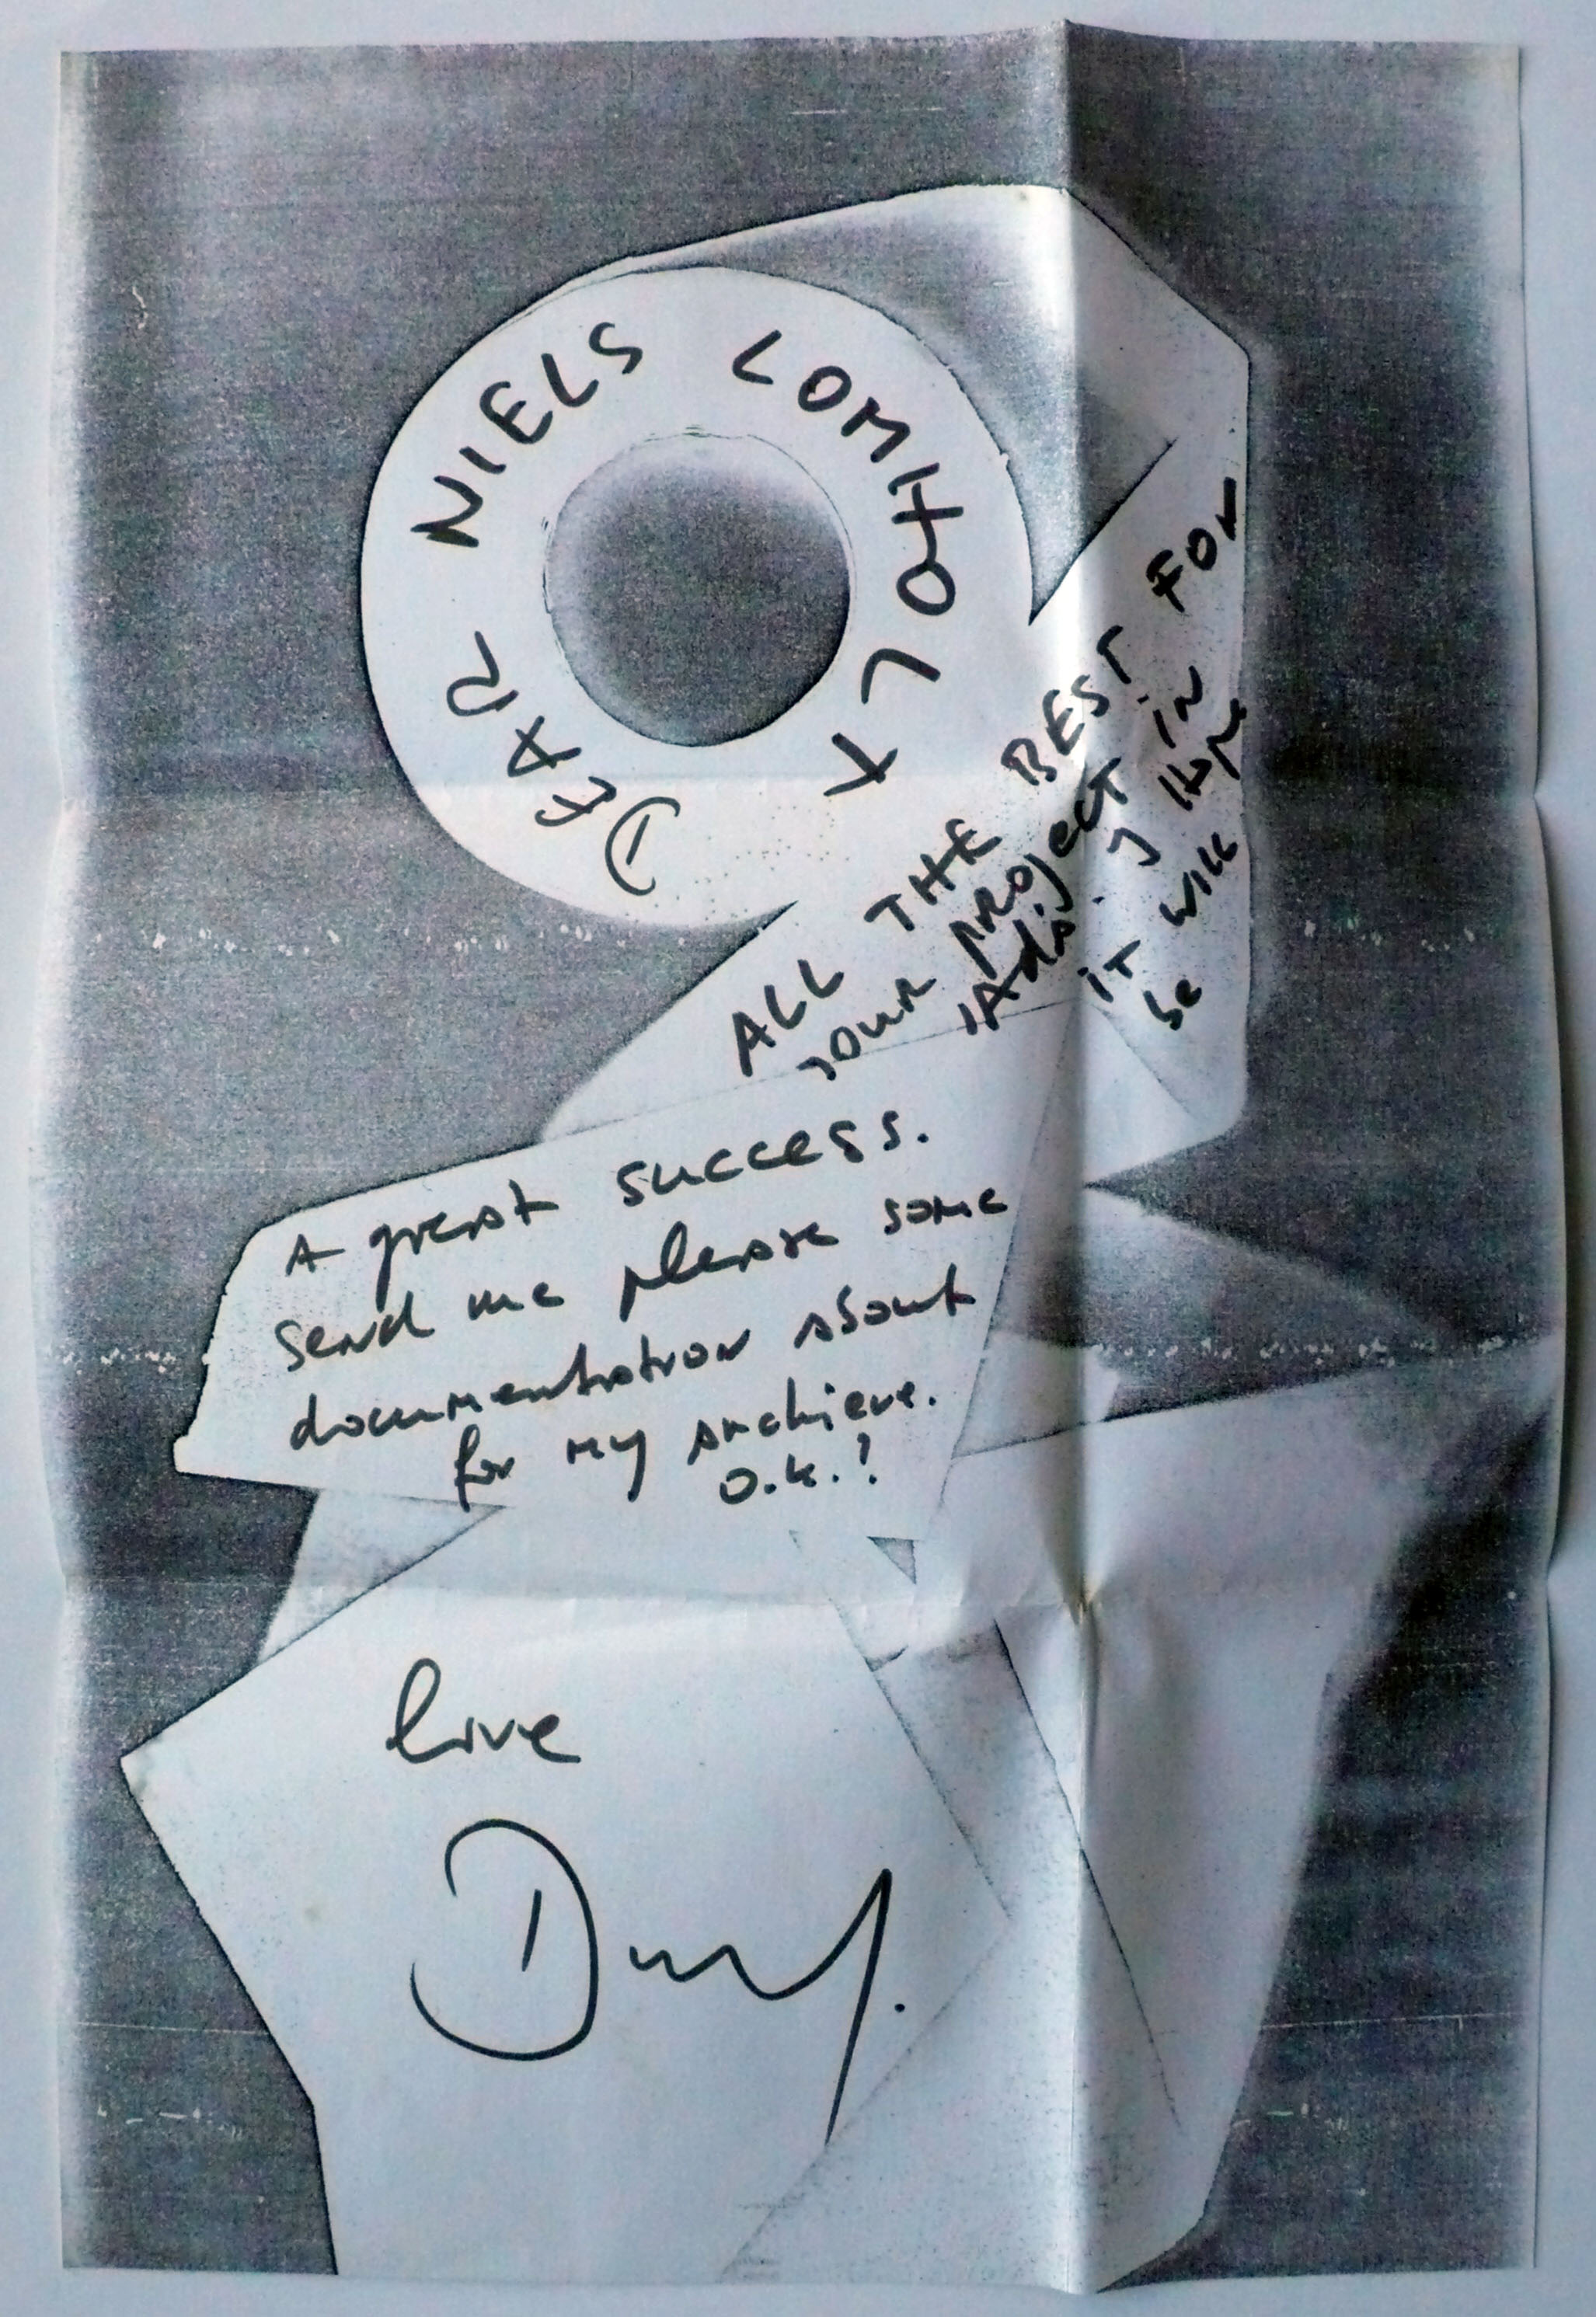 DEAR NIELS LOMHOLT
ALL THE BEST FOR
YOUR PROJECT IN
. J Hope
it will
be
A great success.
Send me please some
documentation about
for my archieve.
O.K.!
love